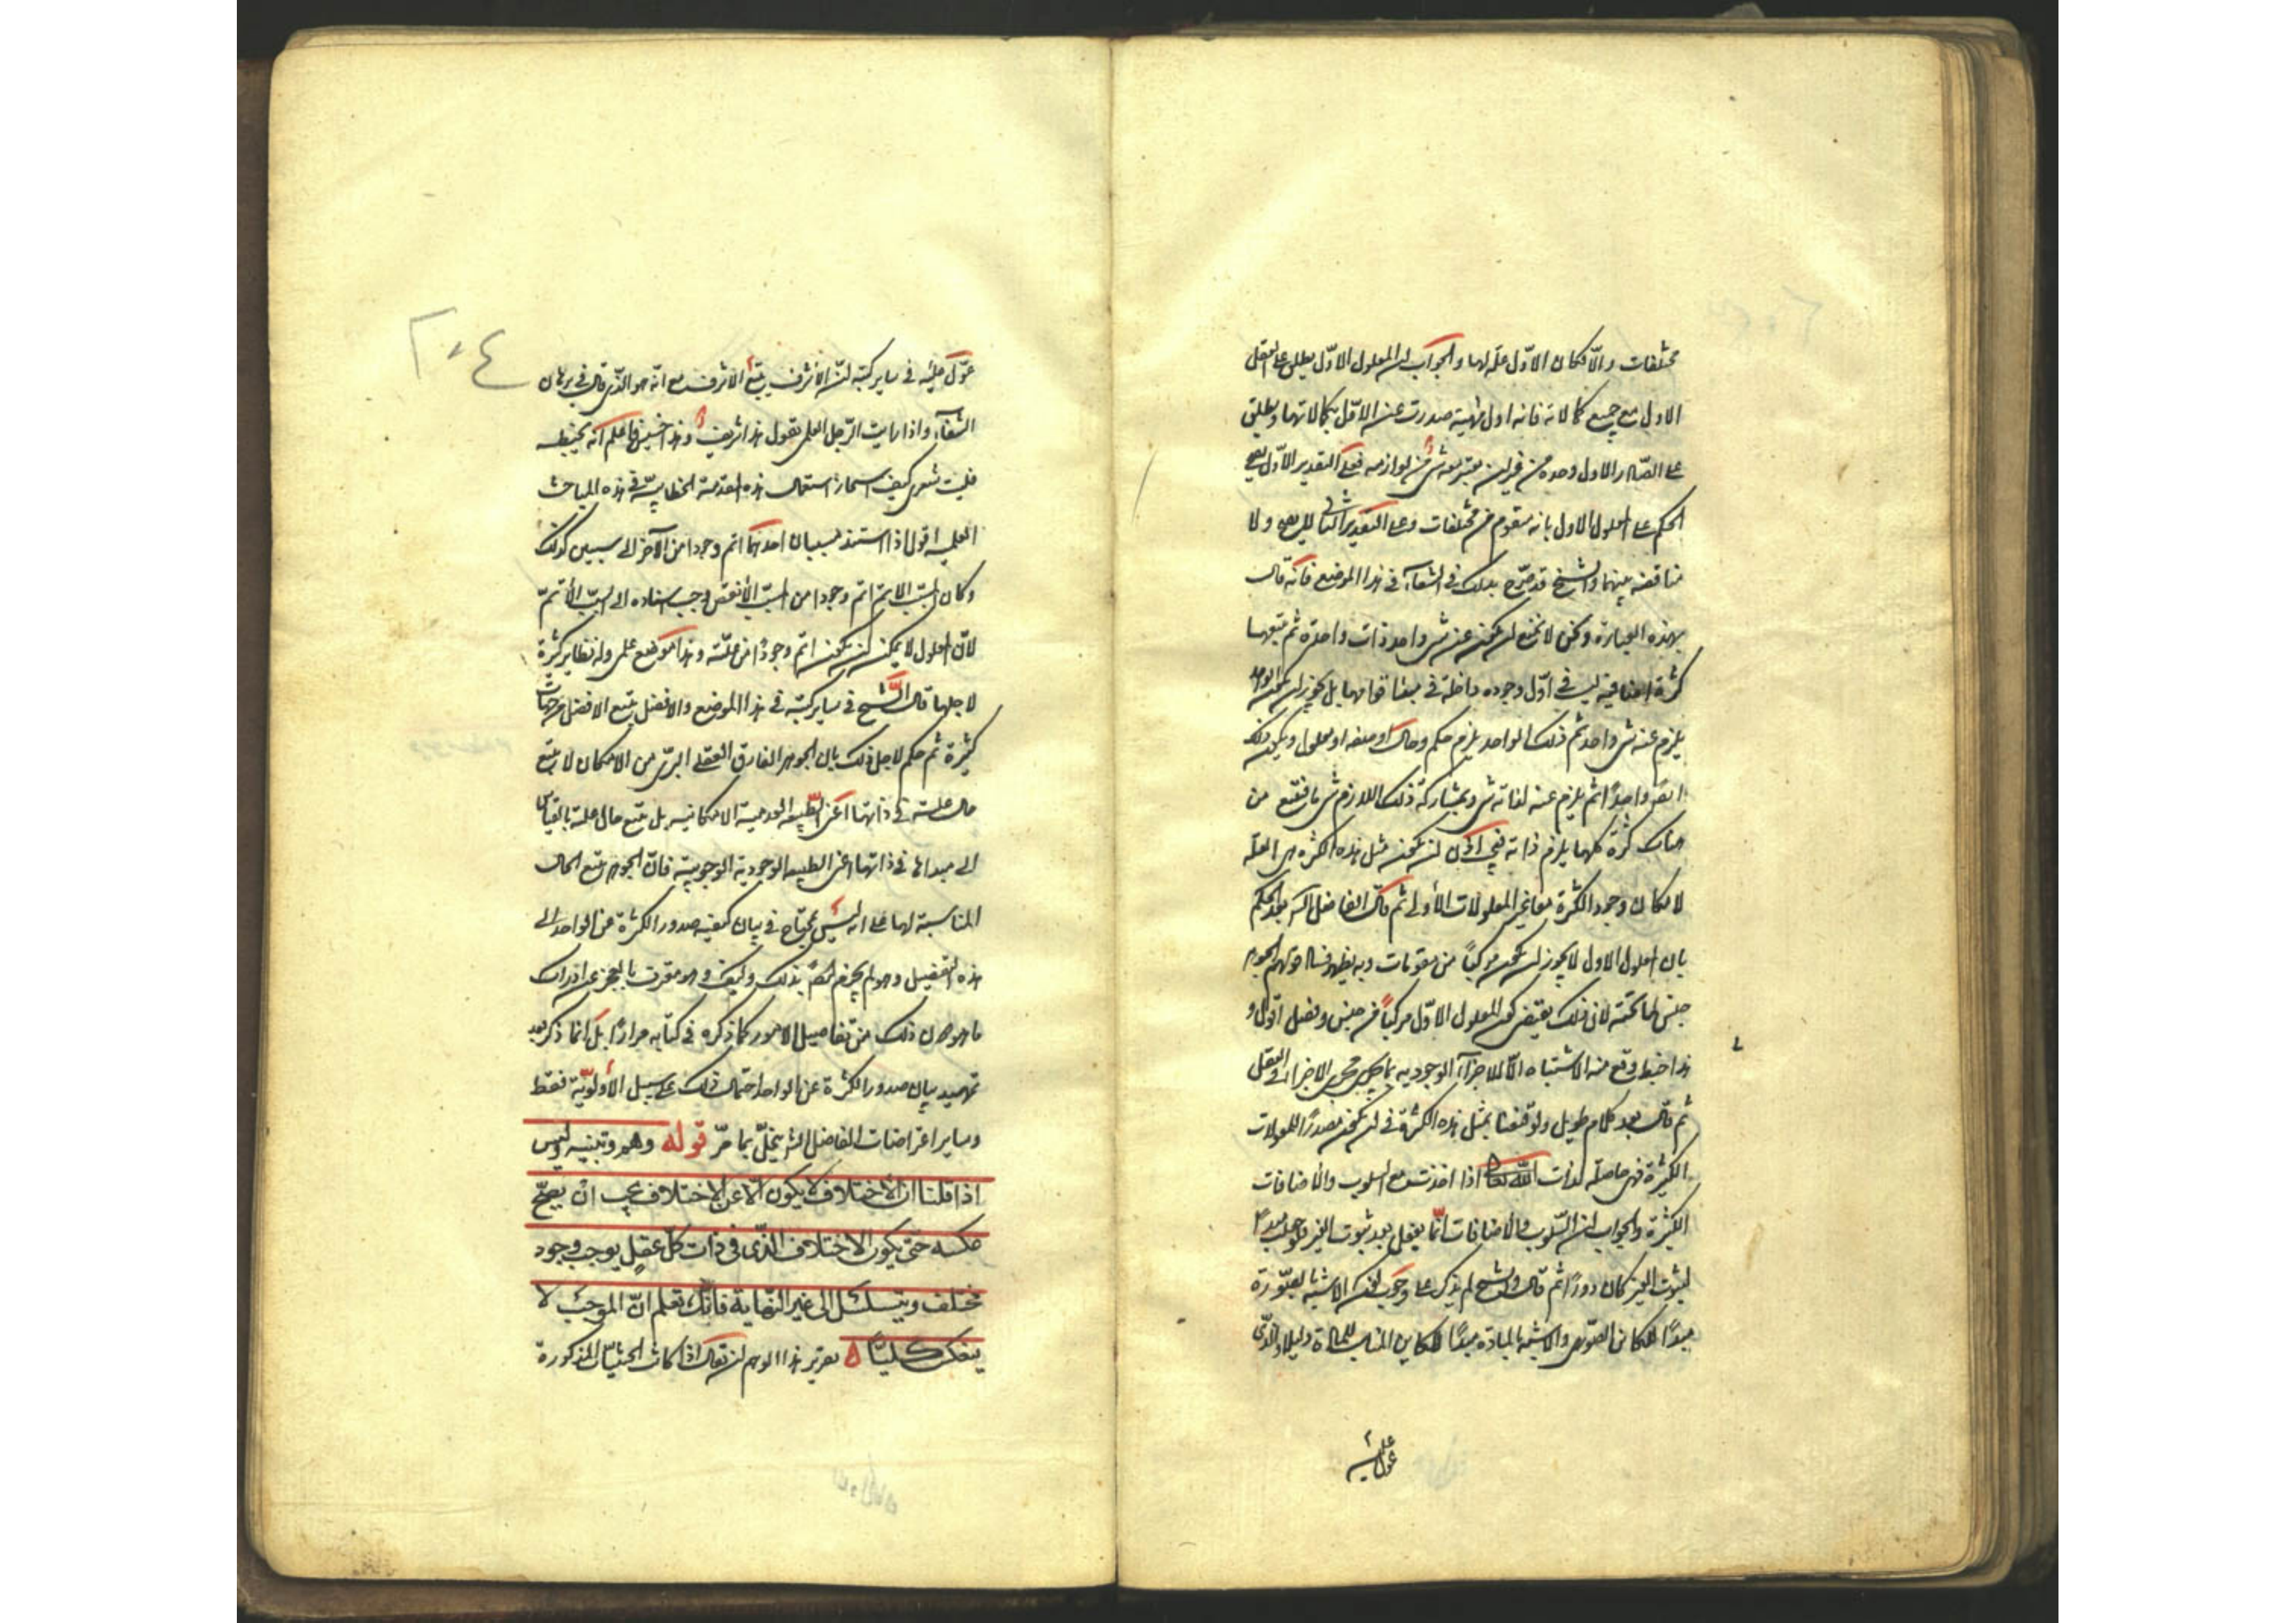 مختلفات والا لكان الاول علة لها والجواب ان المعلول الاول يطلق على العقل
الاول مع جميع كمالاته فانه اول مهية صدرت عن الاول بكمالاتها ويطلق
على الصادر الاول وحده من غير ان يعتبر معه شئ من لوازمه فعلى التقدير الاول يصح
الحكم على المعلول الاول بانه متقوم من مختلفات وعلى التقدير الثانى لا يصح ولا
مناقضة بينهما والشيخ قد صرح بذلك فى الشفاء فى هذا الموضع فانه قال
بهذه العبارة ونحن لا نمنع ان يكون عن شئ واحد ذات واحدة ثم يتبعها
كثرة اضافية ليست فى اول وجوده داخلة فى مبدأ قوامها بل يجوز ان يكون الواحد
يلزم عنه شئ واحد ثم ذلك الواحد يلزمه حكم وحال او صفة او معلول ويكون ذلك
ايضا واحدا ثم يلزم عنه لذاته شئ وبمشاركة ذلك اللازم شئ فيتبع من
هناك كثرة كلها يلزم ذاته فيجب اذن ان يكون مثل هذه الكثرة هى العلة
لامكان وجود الكثرة معا عن المعلولات الاولى ثم قال الفاضل الشارح بعد الحكم
بان المعلول الاول لا يجوز ان يكون مركبا من مقومات وبه يظهر فساد قولهم الجوهر
جنس لما تحته لان ذلك يقتضى كون المعلول الاول مركبا من جنس وفصل اقول و
هذا خبط وقع منه لاشتباه الاجزاء الوجودية بما يجرى مجرى الاجزاء فى العقل
ثم قال بعد كلام طويل ولو قنعنا بمثل هذه الكثرة فى ان يكون مصدرا للمعلولات
الكثيرة فهى حاصلة لذات الله تعالى اذا اخذت مع السلوب والاضافات
الكثيرة والجواب ان السلوب والاضافات انما يعقل بعد ثبوت الغير فلو جعل مبدءا
لثبوت الغير كان دورا ثم قال والشيخ لم يذكر على وجوب كون الاشبه بالصورة
مبدءا للكائن الصورى والاشبه بالمادة مبدءا للكائن المناسب للمادة دليلا والذى
عول عليه
عول عليه فى ساير كتبه ان الاشرف يتبع الاشرف مع انه هو الذى قال فى برهان
الشفاء واذا رايت الرجل العلمى يقول هذا شريف وهذا خسيس فاعلم انه يخبط
فليت شعرى كيف استجاز استعمال هذه المقدمة الخطابية فى هذه المباحث
العلمية اقول اذا استند مسببان احدهما اتم وجودا من الآخر الى سببين كذلك
وكان المسبب الاتم اتم وجودا من السبب الانقص وجب اسناده الى السبب الاتم
لان المعلول لا يمكن ان يكون اتم وجودا من علته وهذا موضع علمى وله نظاير كثيرة
لاجلها قال الشيخ فى ساير كتبه فى هذا الموضع والافضل يتبع الافضل من جهات
كثيرة ثم حكم لاجل ذلك بان الجوهر المفارق العقلى البرئ من الامكان لا يتبع
حال علته فى ذاتها اعنى الطبيعة العدمية الامكانية بل يتبع حال علته بالقياس
الى مبدئها فى ذاتها اعنى الطبيعة الوجودية الوجوبية فان الجوهر يتبع الحال
المناسبة لها على انه ليس بمحتاج فى بيان كيفية صدور الكثرة عن الواحد الى
هذه التفصيل وهو لم يجزم ايضا بذلك وكيف وهو معترف بالعجز عن ادراك
ما هو دون ذلك من تفاصيل الامور كما ذكره فى كتابه مرارا بل انما ذكر بعد
تمهيد بيان صدور الكثرة عن الواحد احتمال ذلك على سبيل الاولوية فقط
وساير اعتراضات الفاضل الشارح ينحل بما مر قوله وهم وتنبيه وليس
اذا قلنا ان الاختلاف لا يكون الا عن الاختلاف يجب ان يصح
عكسه حتى يكون الاختلاف الذى فى ذات كل عقل يوجب وجود
مختلف ويتسلسل الى غير النهاية فانك تعلم ان الموجب لا
ينعكس كليا ه تقرير هذا الوهم ان يقال اذا كانت الحيثيات المذكورة
٢٠٤